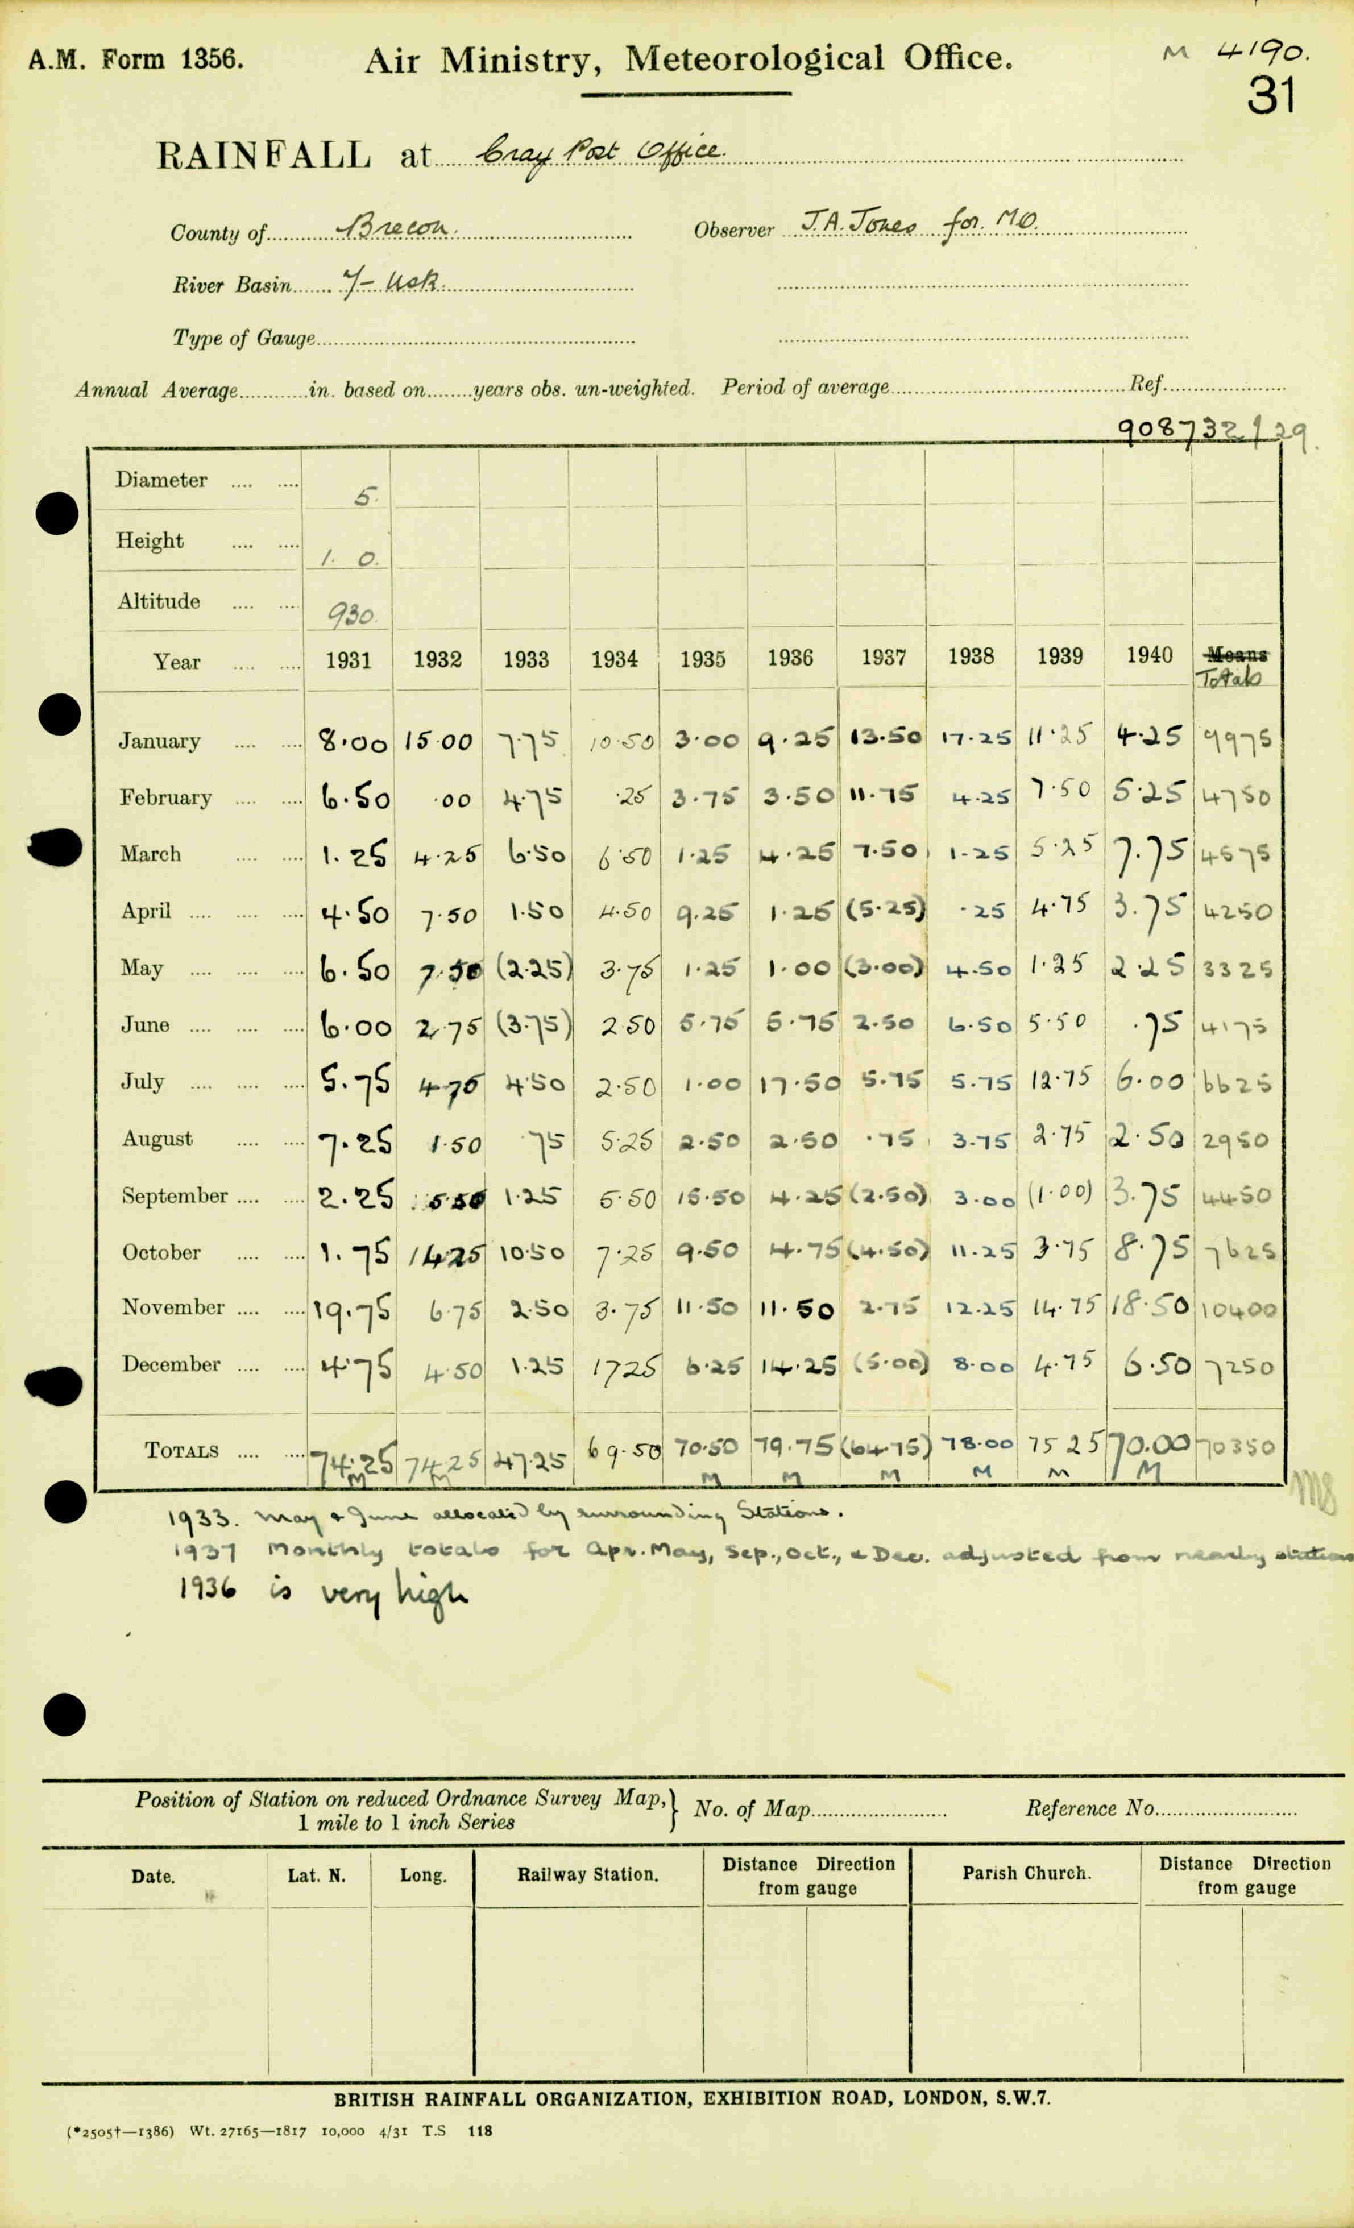 A.M. Form 1356. Air Ministry, Meteorological Office. M 4190.
31
RAINFALL at Cray Post Office.
County of Brecon. Observer J.A. Jones for M.O.
River Basin 7- Usk.
Type of Gauge
Annual Average in. based on years obs. un-weighted. Period of average Ref.
908732/29.
Diameter 5.
Height 1. 0.
Altitude 930.
Year 1931 1932 1933 1934 1935 1936 1937 1938 1939 1940 Means
Totals
January 8.00 15.00 7.75 10.50 3.00 9.25 13.50 17.25 11.25 4.25 9975
February 6.50 .00 4.75 .25 3.75 3.50 11.75 4.25 7.50 5.25 4750
March 1.25 4.25 6.50 6.50 1.25 4.25 7.50 1.25 5.25 7.75 4575
April 4.50 7.50 1.50 4.50 9.25 1.25 (5.25) .25 4.75 3.75 4250
May 6.50 7.50 (2.25) 3.75 1.25 1.00 (3.00) 4.50 1.25 2.25 3325
June 6.00 2.75 (3.75) 2.50 5.75 5.75 2.50 6.50 5.50 .75 4175
July 5.75 4.75 4.50 2.50 1.00 17.50 5.75 5.75 12.75 6.00 6625
August 7.25 1.50 .75 5.25 2.50 2.50 .75 3.75 2.75 2.50 2950
September 2.25 5.50 1.25 5.50 15.50 4.25 (2.50) 3.00 (1.00) 3.75 4450
October 1.75 14.25 10.50 7.25 9.50 4.75 (4.50) 11.25 3.75 8.75 7625
November 19.75 6.75 2.50 3.75 11.50 11.50 2.75 12.25 14.75 18.50 10400
December 4.75 4.50 1.25 17.25 6.25 14.25 (5.00) 8.00 4.75 6.50 7250
TOTALS 74.25 74.25 47.25 69.50 70.50 79.75 (64.75) 78.00 75 25 70.00 70350
M M M M M M M M
1933. May & June allocated by surrounding Stations.
1937 Monthly totals for Apr. May, Sep., Oct., & Dec. adjusted from nearby stations
1936 is very high
Position of Station on reduced Ordnance Survey Map, No. of Map Reference No.
1 mile to 1 inch Series
Date. Lat. N. Long. Railway Station. Distance Direction Parish Church. Distance Direction
from gauge from gauge
BRITISH RAINFALL ORGANIZATION, EXHIBITION ROAD, LONDON, S.W.7.
(*2505†—1386) Wt. 27165—1817 10,000 4/31 T.S 118